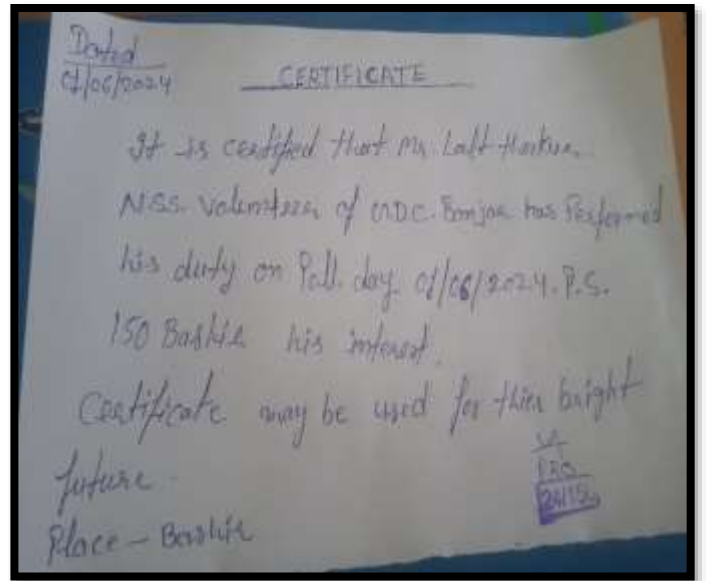 Dated
01/06/2024
CERTIFICATE
It is certified that Mr. Lalt
NSS. Volunteer of GDC. Banjar has Performed
his duty on Poll. day 01/06/2024. P.S.
150 Bashir his interest.
Certificate may be used for thier bright
future.
Place - Bashir
PRO
24/150